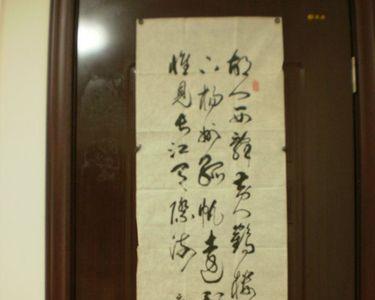 故人西辭黃鶴樓
下揚州孤帆遠影
惟見長江天際流